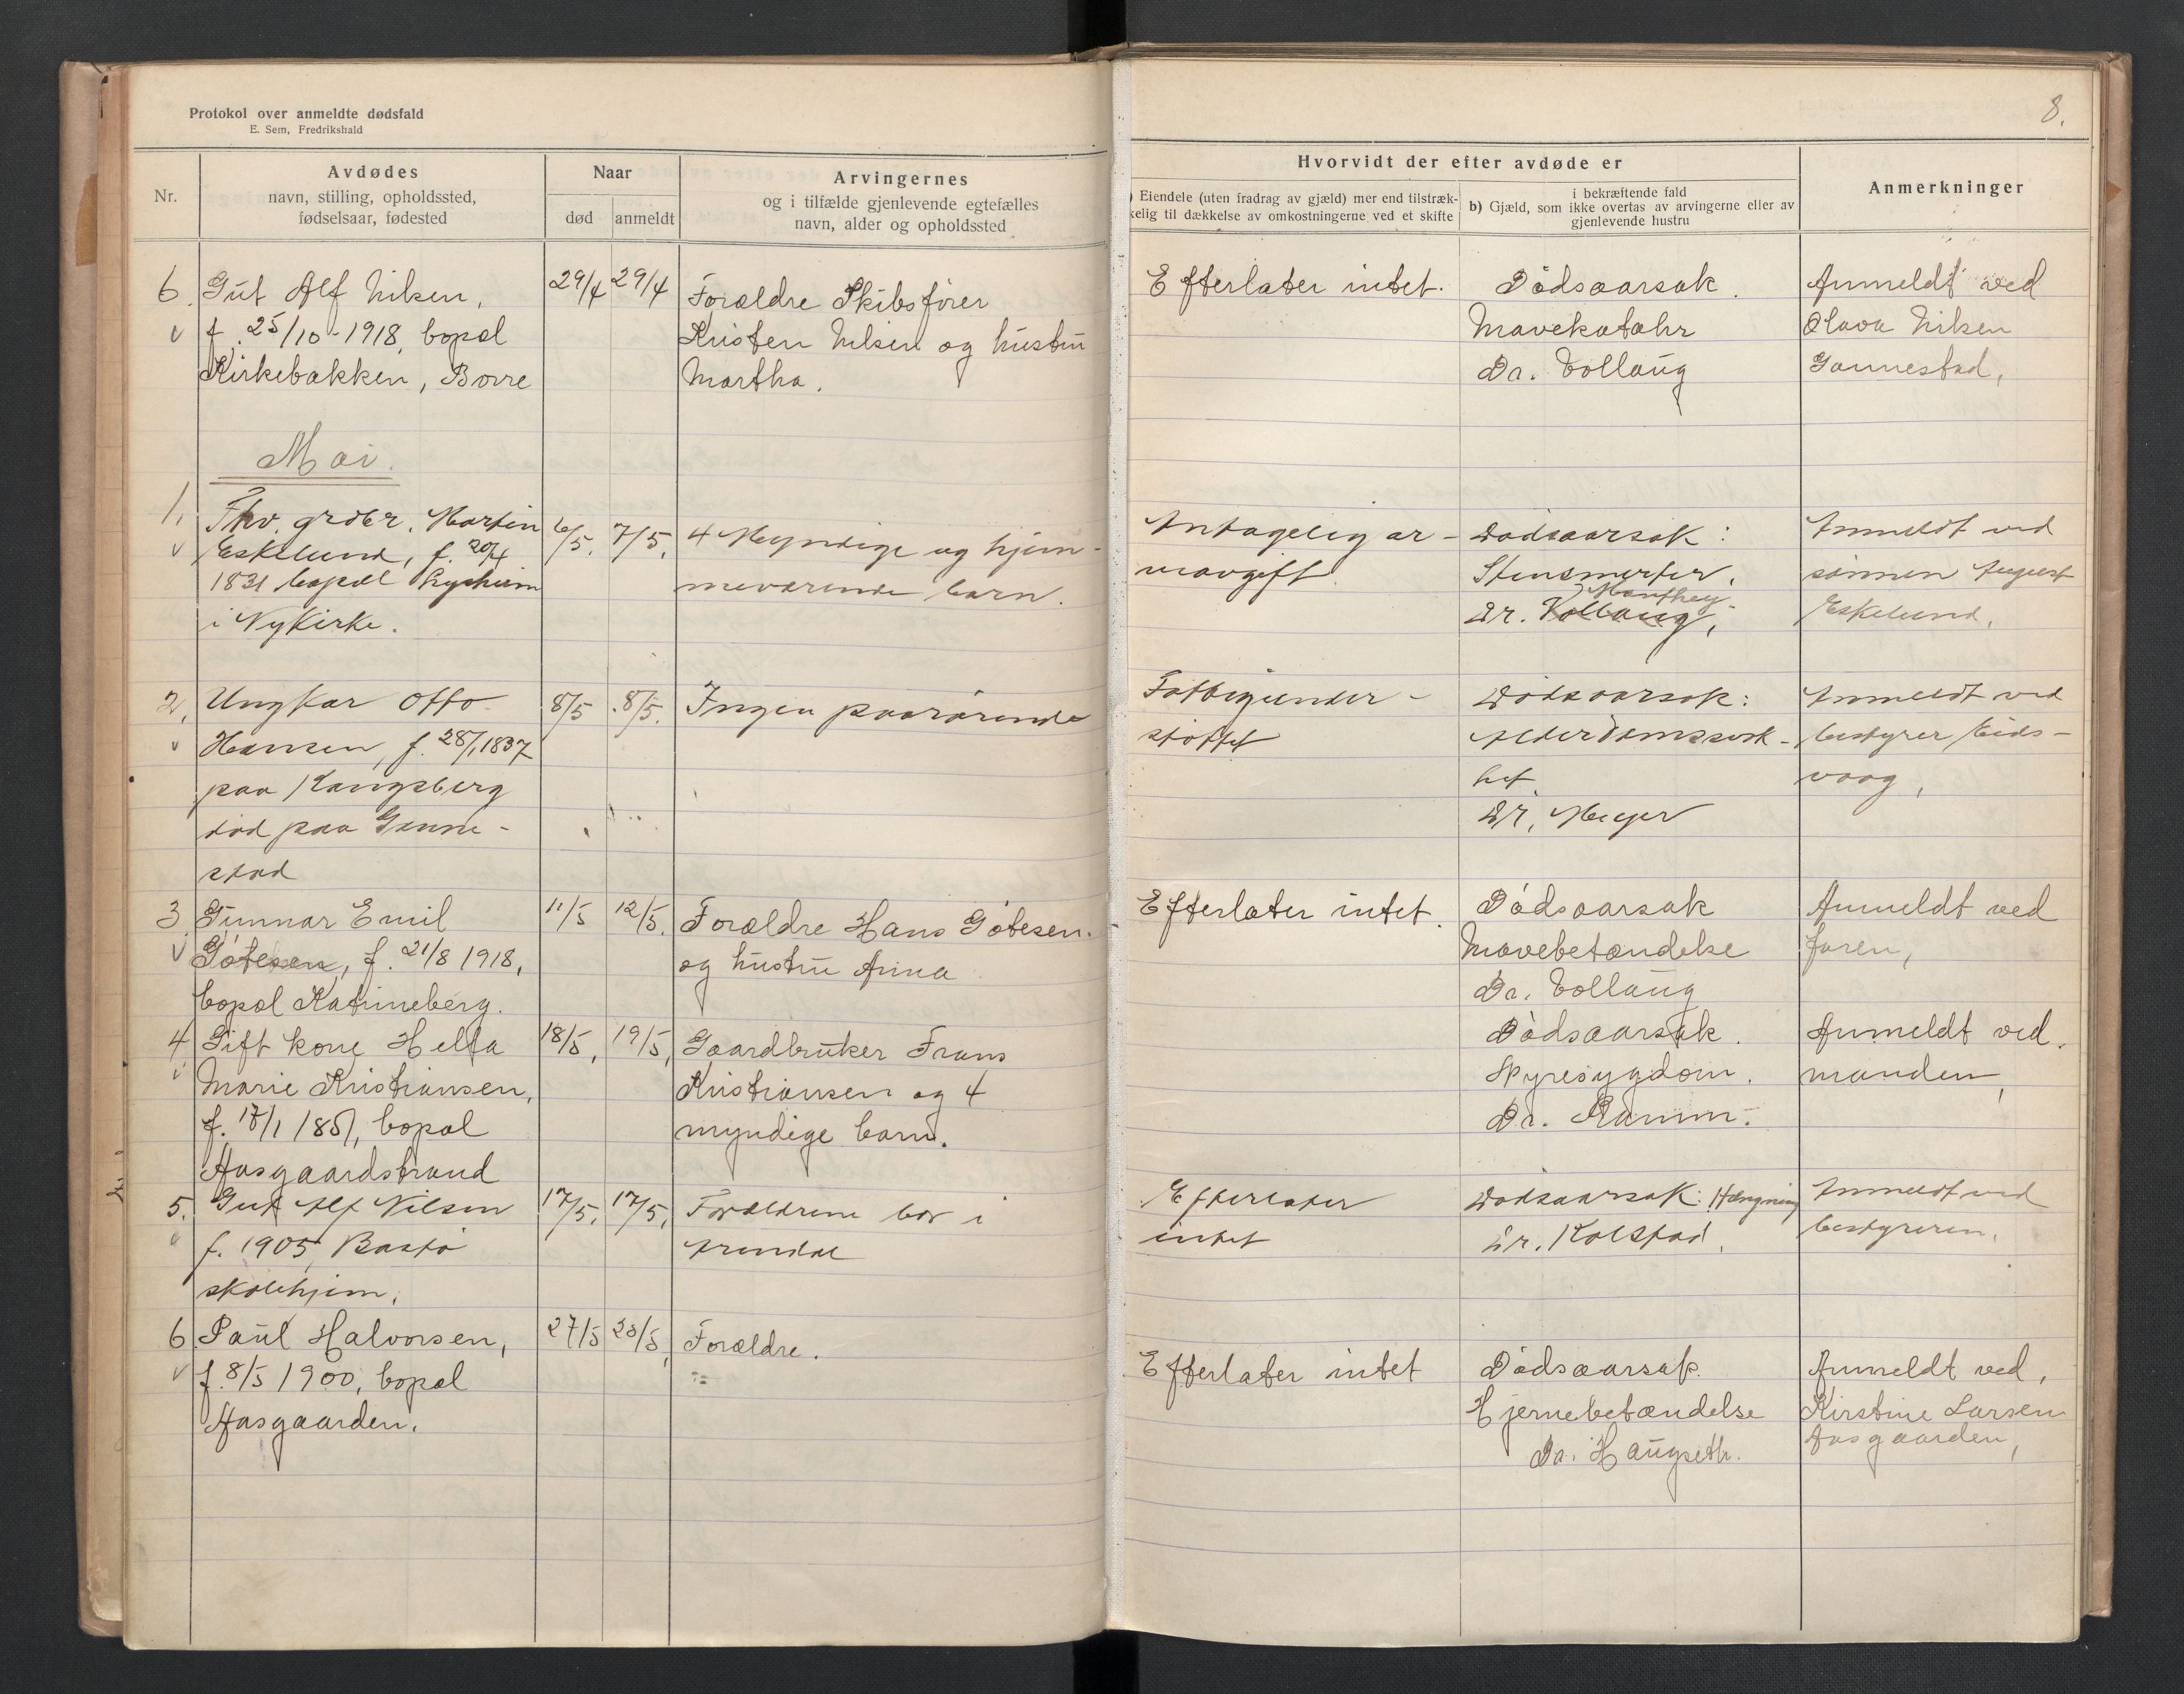 Protokol over anmeldte dødsfald
E. Sem, Fredrikshald
8.
Nr.
Avdødes
navn, stilling, opholdssted,
fødselsaar, fødested
Naar
død
anmeldt
Arvingernes
og i tilfælde gjenlevende egtefælles
navn, alder og opholdssted
Hvorvidt der efter avdøde er
) Eiendele (uten fradrag av gjæld) mer end tilstræk-
kelig til dækkelse av omkostningerne ved et skifte
i bekræftende fald
b) Gjæld, som ikke overtas av arvingerne eller av
gjenlevende hustru
Anmerkninger
6.
Gut Alf Nilsen,
f. 25/10-1918, bopæl
Kirkebakken, Borre
29/4
29/4
Forældre Skibsfører
Kristen Nilsen og hustru
Martha.
Efterlater intet.
Dödsaarsak.
Mavekatahr
Dr. Tollaug
Anmeldt ved
Olava Nilsen
Gannestad,
Mai.
1.
Fhv. grdbr. Martin
Eskelund, f. 20/4
1831 bopæl Lysheim
i Nykirke.
6/5.
7/5.
4 Myndige og hjem-
meværende barn.
Antagelig ar-
veavgift
Dødsaarsak:
Stensmerter.
Manthey
Dr. Tollaug,
Anmeldt ved
sønnen August
Eskelund,
2.
Ungkar Otto
Hansen, f. 28/1 1837
paa Kongsberg
død paa Gunne-
stad
8/5
8/5.
Ingen paarørende
Fattigunder-
støttet
Dødsaarsak:
Alderdomssvak-
het
Dr. Meyer
Anmeldt ved
bestyrer Eids-
vaag,
3.
Gunnar Emil
Götesen, f. 21/8 1918,
bopæl Katrineberg.
11/5
12/5.
Forældre Hans Götesen.
og hustru Anna
Efterlater intet.
Dödsaarsak
Mavebetændelse
Dr. Tollaug
Anmeldt ved
faren,
4
Gift kone Helfa
Marie Kristiansen,
f. 17/1 1851, bopæl
Aasgaardstrand
18/5,
19/5,
Gaardbruker Frans
Kristiansen og 4
myndige barn.
Dödsaarsak.
Nyresygdom.
Dr. Ramm.
Anmeldt ved
manden,
5.
Gut Alf Nilsen
f. 1905, Bastø
skolehjem.
17/5,
17/5,
Forældrene bor i
Arendal
Efterlater
intet
Dødsaarsak: Hængning
Dr. Kolstad,
Anmeldt ved
bestyreren,
6.
Paul Halvorsen,
f. 8/5 1900, bopæl
Aasgaarden.
27/5
28/5,
Forældre.
Efterlater intet
Dödsaarsak.
Hjernebetændelse
Dr. Haugseth.
Anmeldt ved,
Kirstine Larsen
Aasgaarden,